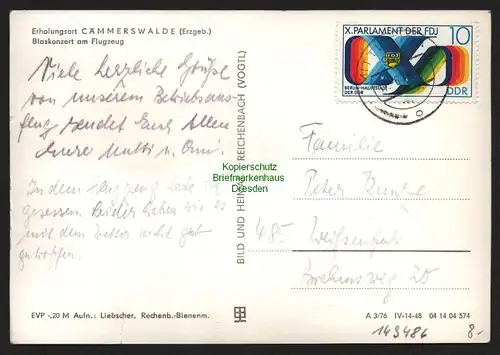 Erholungsort CÄMMERSWALDE (Erzgeb.)
Blaskonzert am Flugzeug
Viele herzliche Grüße
von unserem Betriebsaus-
flug sendet Euch Allen
Eure Mutti u. Omi.
In dem Flugzeug habe ich
gesessen. Leider haben wir es
mit dem Wetter nicht gut
getroffen.
EVP -,20 M Aufn.: Liebscher, Rechenb.-Bienenm.
BILD UND HEIMAT REICHENBACH (VOGTL)
Kopierschutz
Briefmarkenhaus
Dresden
X. PARLAMENT DER FDJ 10
BERLIN-HAUPTSTADT
DER DDR
DDR
Familie
Peter
485 Weißenfels
Brehmsweg 20
A 3/76 IV-14-48 04 14 04 574
149486 8-